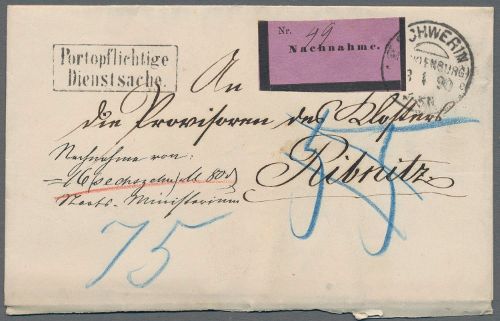 Portopflichtige
Dienstsache.
Nr. 49
Nachnahme.
SCHWERIN
90
An
die Provisoren des Klosters
Ribnitz.
Nachnahme von:
=16 (sechszehn) M 80
Staats-Ministerium
75
55